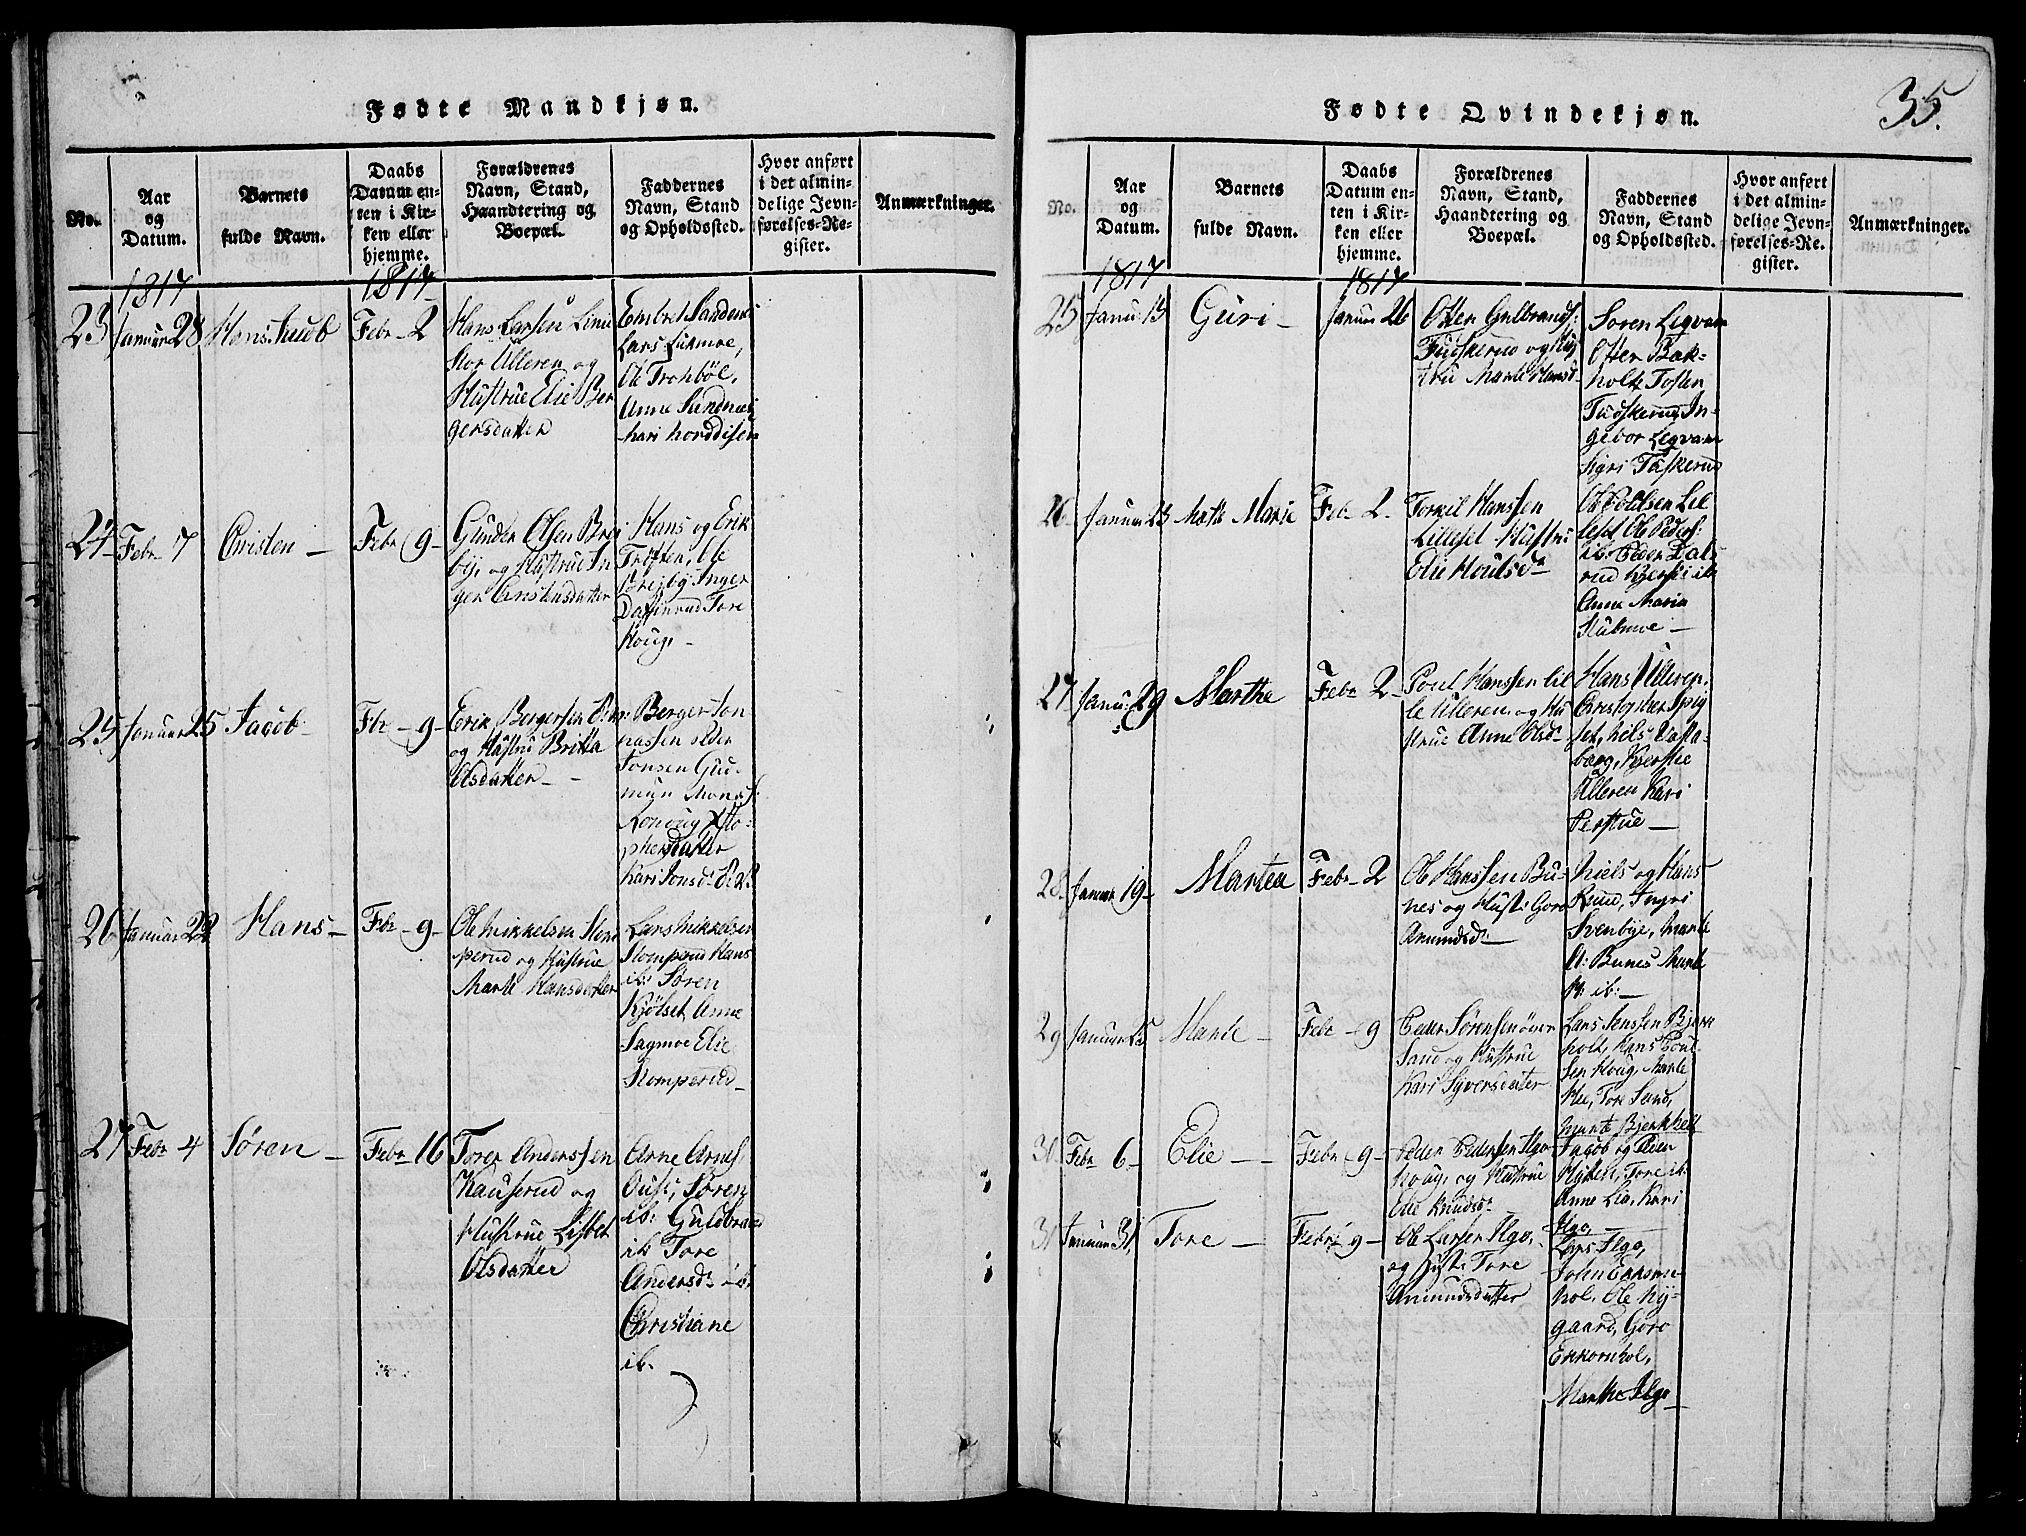 Fødte Mandkjøn.
No.
Aar
og
Datum.
Barnets
fulde Navn.
Daabs
Datum en-
ten i Kir-
ken eller
hjemme.
Forældrenes
Navn, Stand,
Haandtering og
Boepæl.
Faddernes
Navn, Stand
og Opholdssted.
Hvor anført
i det almin-
delige Jevn-
førelses-Re-
gister.
Anmærkninger.
1817
1817
23
Januar 28
Hans Jacob
Febr 2
Hans Larsen
Stor Ulleren og
Hustrue Elie Ber
gersdatter
Embret Sandenes
Lars
Ole Trohböl,
Anne Sandnes
24
Febr 7
Christen
Febr 9
Gunder Olsen Brei
bye og Hustrue In
ger Christensdatter
Hans og Erik
Trøften, Ole
Breiby Inger
Daffinrud Tore
Houg
25
Januar 25
Jacob
Fbr 9
Erik Bergersen
og Hustru Britta
Olsdatter
Berger Jon
nassen
Jonsen Gud-
mun
Ronnoug Xsto-
phersdatter
Kari Jonsd.
26
Januar 22
Hans
Febr 9
Ole Mikkelsen Stom
perud og Hustrue
Marte Hansdatter
Lars Mikkelsen
Stomperud Hans
ib: Søren
Kjölset, Anne
Sagmoe Elie
Stomperud
27
Febr 4
Søren
Febr 16
Torer Anderssen
Kauserud og
Hustrue Lisbet
Olsdatter
Arne Arnes
Ous, Søren
ib: Guldbrand
ib: Tore
Andersd: ib.
Christiane
ib.
35.
Fødte Qvindekjøn.
No.
Aar
og
Datum.
Barnets
fulde Navn.
Daabs
Datum en-
ten i Kir-
ken eller
hjemme.
Forældrenes
Navn, Stand,
Haandtering og
Boepæl.
Faddernes
Navn, Stand
og Opholdssted.
Hvor anført
i det almin-
delige Jevn-
førelses-Re-
gister.
Anmærkninger.
1817
1817
25
Janu: 13
Guri
Januar 26
Often Gulbrands:
Fuskerud og Hus
tru Marte Hansd.
Soren Legvam
Often Bak-
holte Tosten
Fuskerud, In-
gebor Legvam
Sigri Fuskerud
26
Januar 23
Mette Marie
Feb 2
Torkil Hanssen
Lillesel Hustru
Elie Houlsd
Ole Poulsen Lil
lesel Ole Peders:
ib: Peder Dals
rud Kjersti ib
Anne Maria
27
Janu: 29
Marthe
Febr 2
Poul Hanssen Lil
le Ulleren og Hu
strue Anne Olsd
Hans Ulleren,
Christopher Spig
set, Niels
berg, Kjerstie
Ulleren Kari
Perstue
28
Januar 19
Marthe
Febr 2
Ole Hanssen Bu-
nes og Hust: Goro
Amundsd:
Niels og Hans
Ruud, Ingri
Svenbye, Marte
O: Bunes Marte
H: ib:
29
Januar 25
Marte
Febr 9
Peder Sørensen øver
Sand og Hustrue
Kari Syversdatter
Lars Jenssen Bjerk
holt, Hans Poul
sen Houg, Marte
Tore Sand,
Marte Bjerkholt
31
Febr 6
Elie
Febr 9
Peder Pedersen Ilgo
houg, og Hustrue
Elie Knudsd:
Jacob og Peder
Tore ib:
Anne Lia, Kari
Ilgo,
31
Januar 31
Tore
Febr 9
Ole Larsen Ilgo,
og Hust: Tore
Amundsdatter
Lars Ilgo,
John Ekkorn-
hol. Ole Ny-
gaard, Goro
Ekkornhol,
Marthe Ilgo